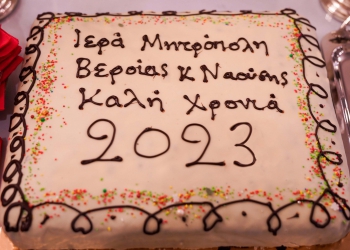 Ιερά Μητρόπολη
Βεροίας κ Ναούσης
Καλή Χρονιά
2023